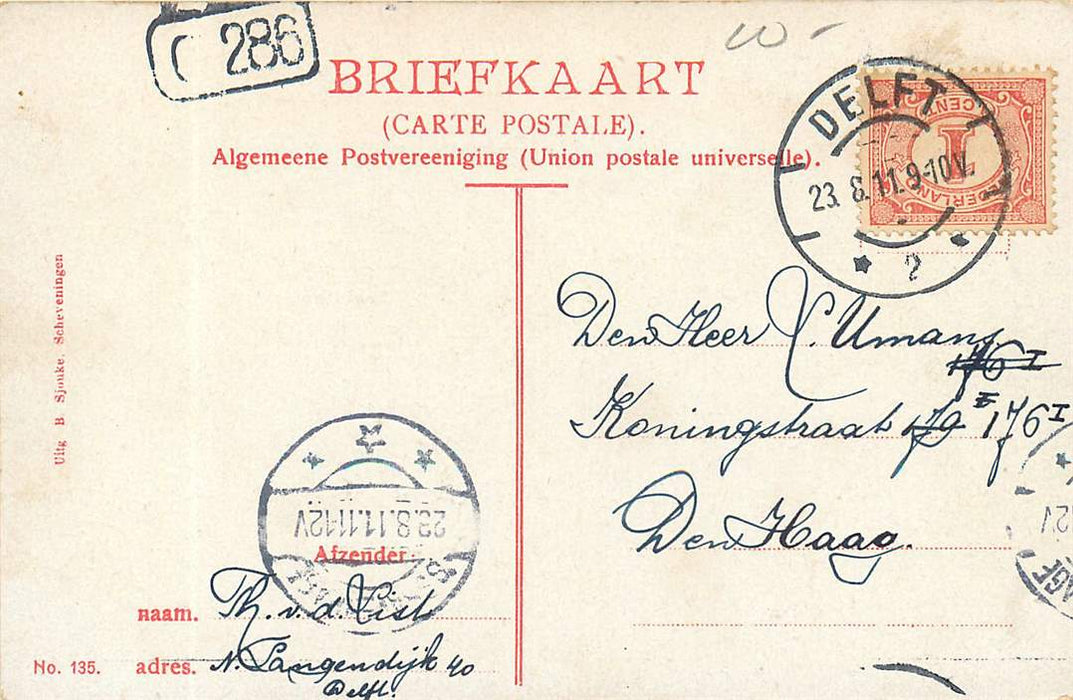 C 286
BRIEFKAART
(CARTE POSTALE).
Algemeene Postvereeniging (Union postale universelle).
10-
DELFT
23.8.11.9-10V.
2
CENT
1
NEDERLAND
Den Heer
Umans
Koningstraat 176 I
Den Haag.
Uitg B Sjouke. Scheveningen
23.8.11.11-12V
12V
Afzender:
naam. Th. v. d.
adres. N. Langendijk 40
Delft.
No. 135.